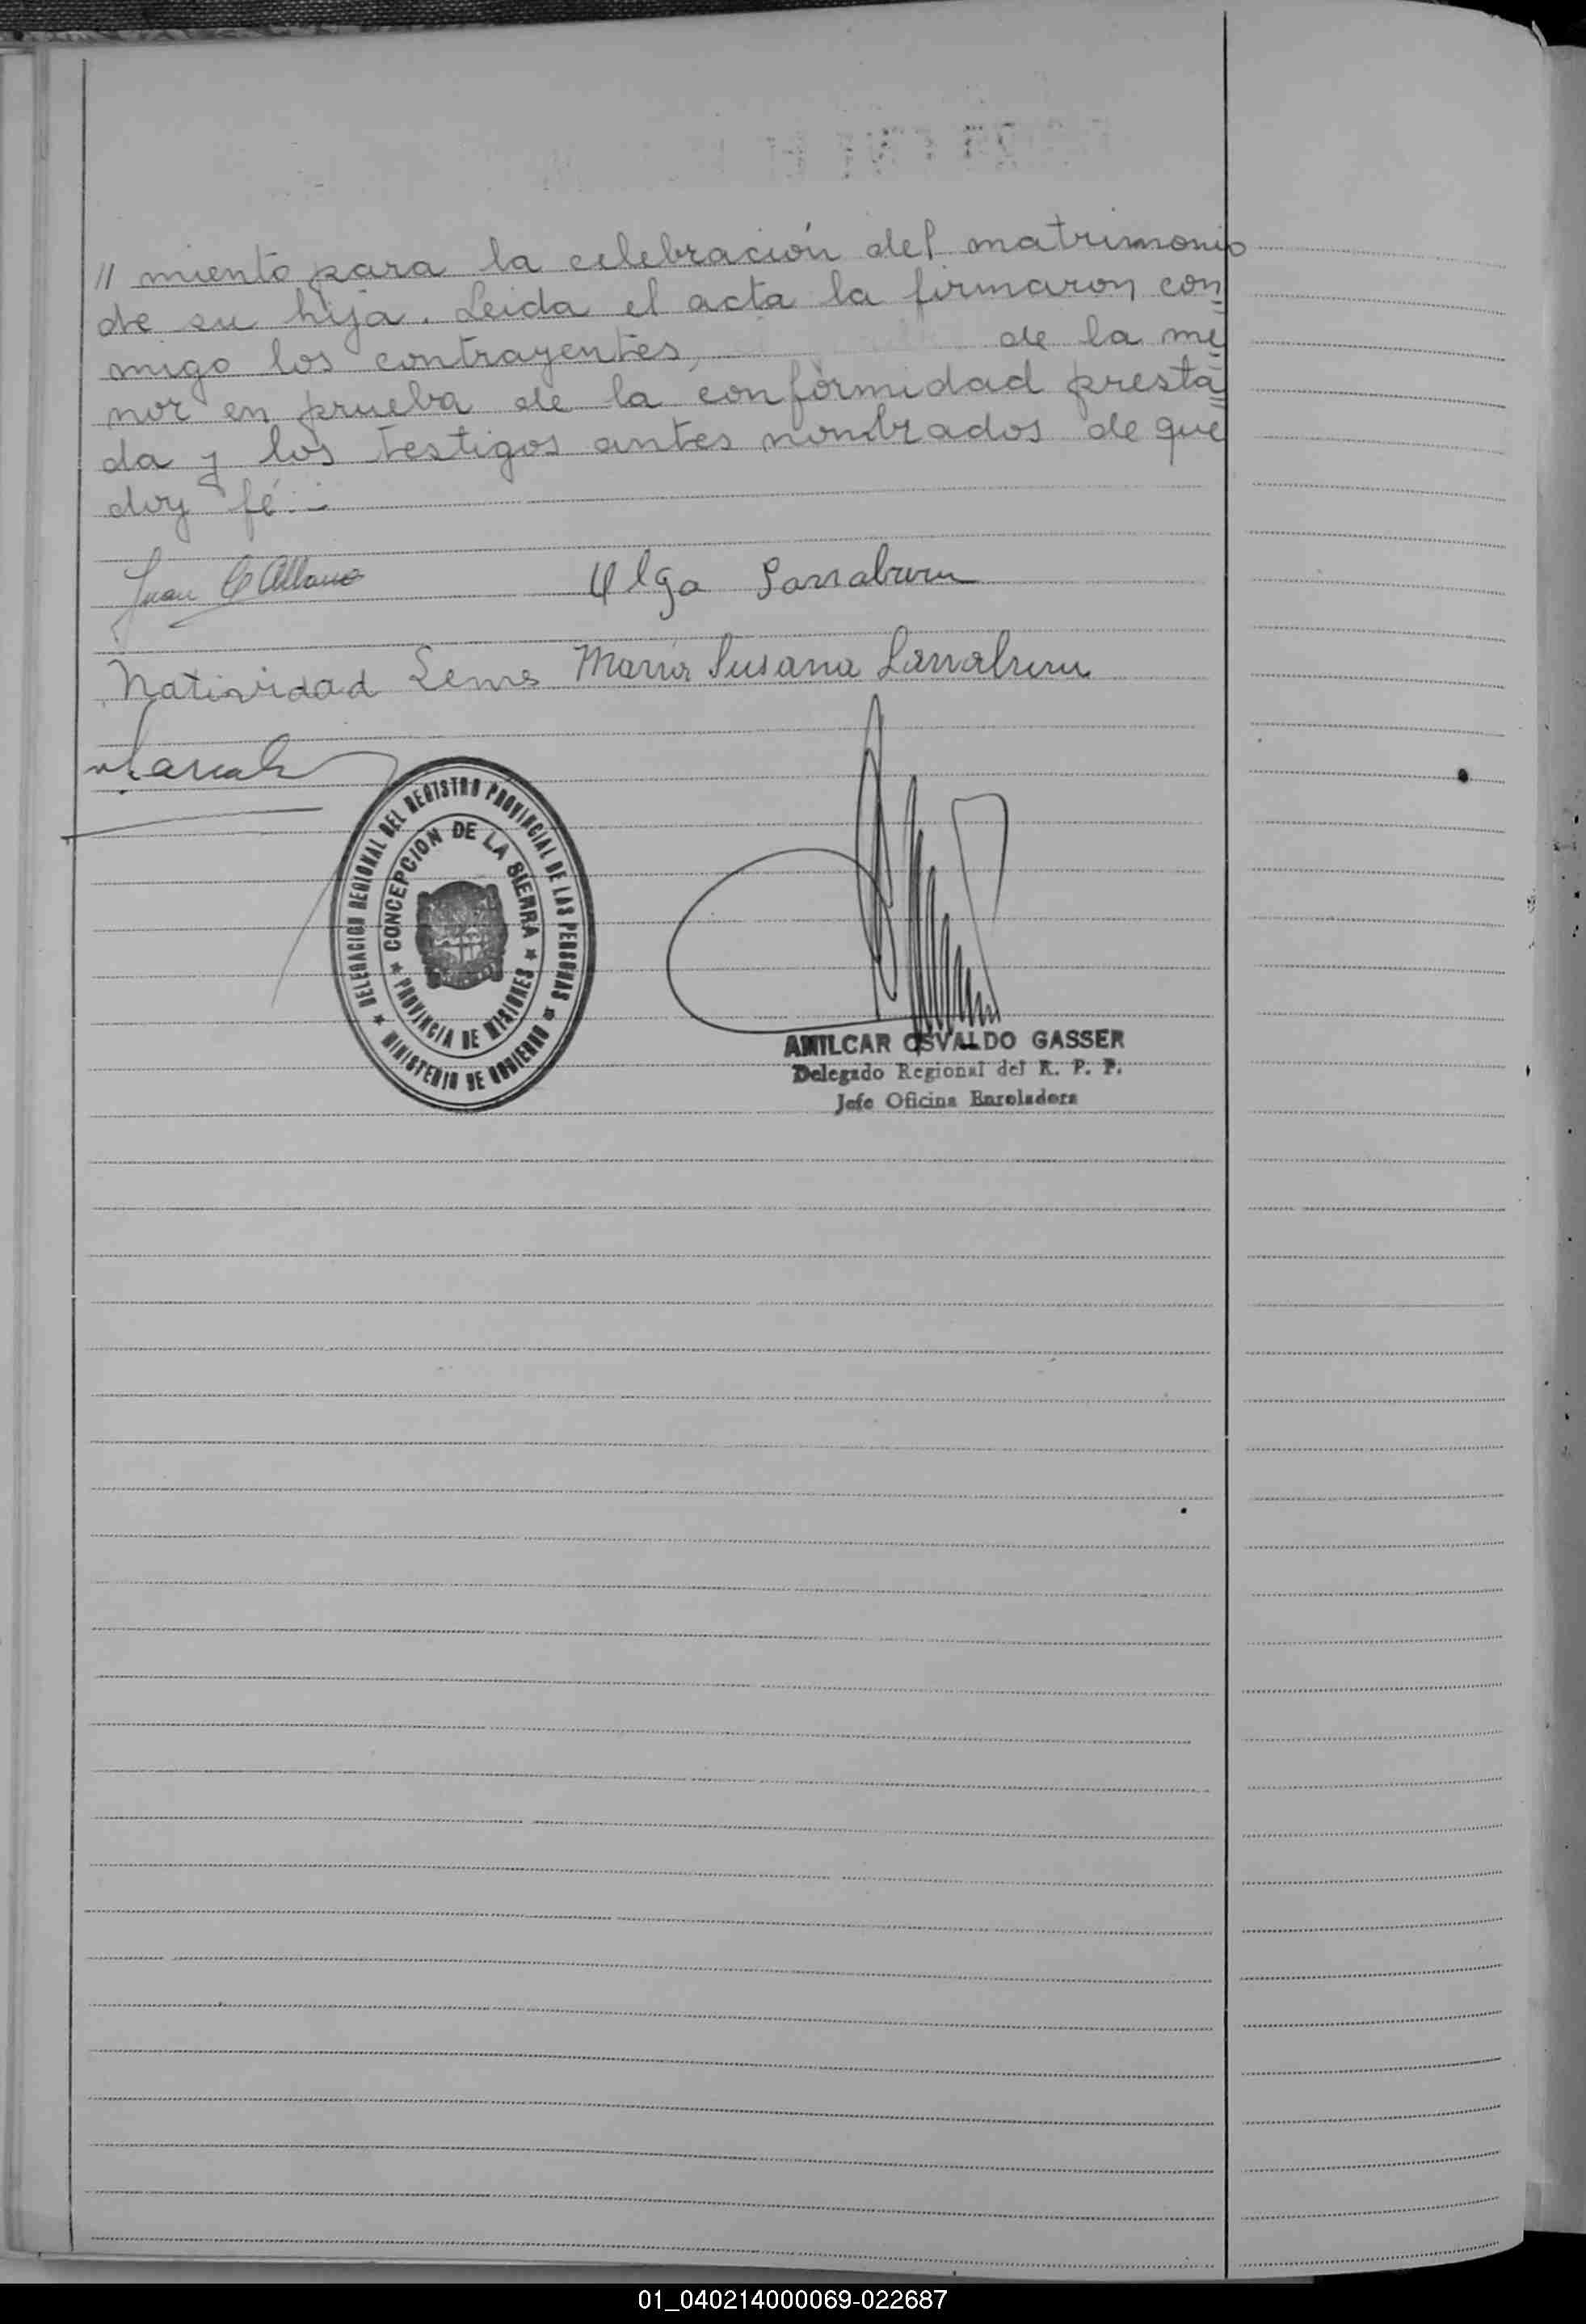 // miento para la celebración del matrimonio
de su hija. Leida el acta la firmaron con
migo los contrayentes, de la me
nor en prueba de la conformidad presta
da y los testigos antes nombrados de que
doy fé.-
Juan
Olga Larraburu
Natividad Lems María Susana Larraburu
DELEGACION REGIONAL DEL REGISTRO PROVINCIAL DE LAS PERSONAS
★ MINISTERIO DE GOBIERNO ★
CONCEPCION DE LA SIERRA
★ PROVINCIA DE MISIONES ★
AMILCAR OSVALDO GASSER
Delegado Regional del R. P. P.
Jefe Oficina Enroladora
01_040214000069-022687